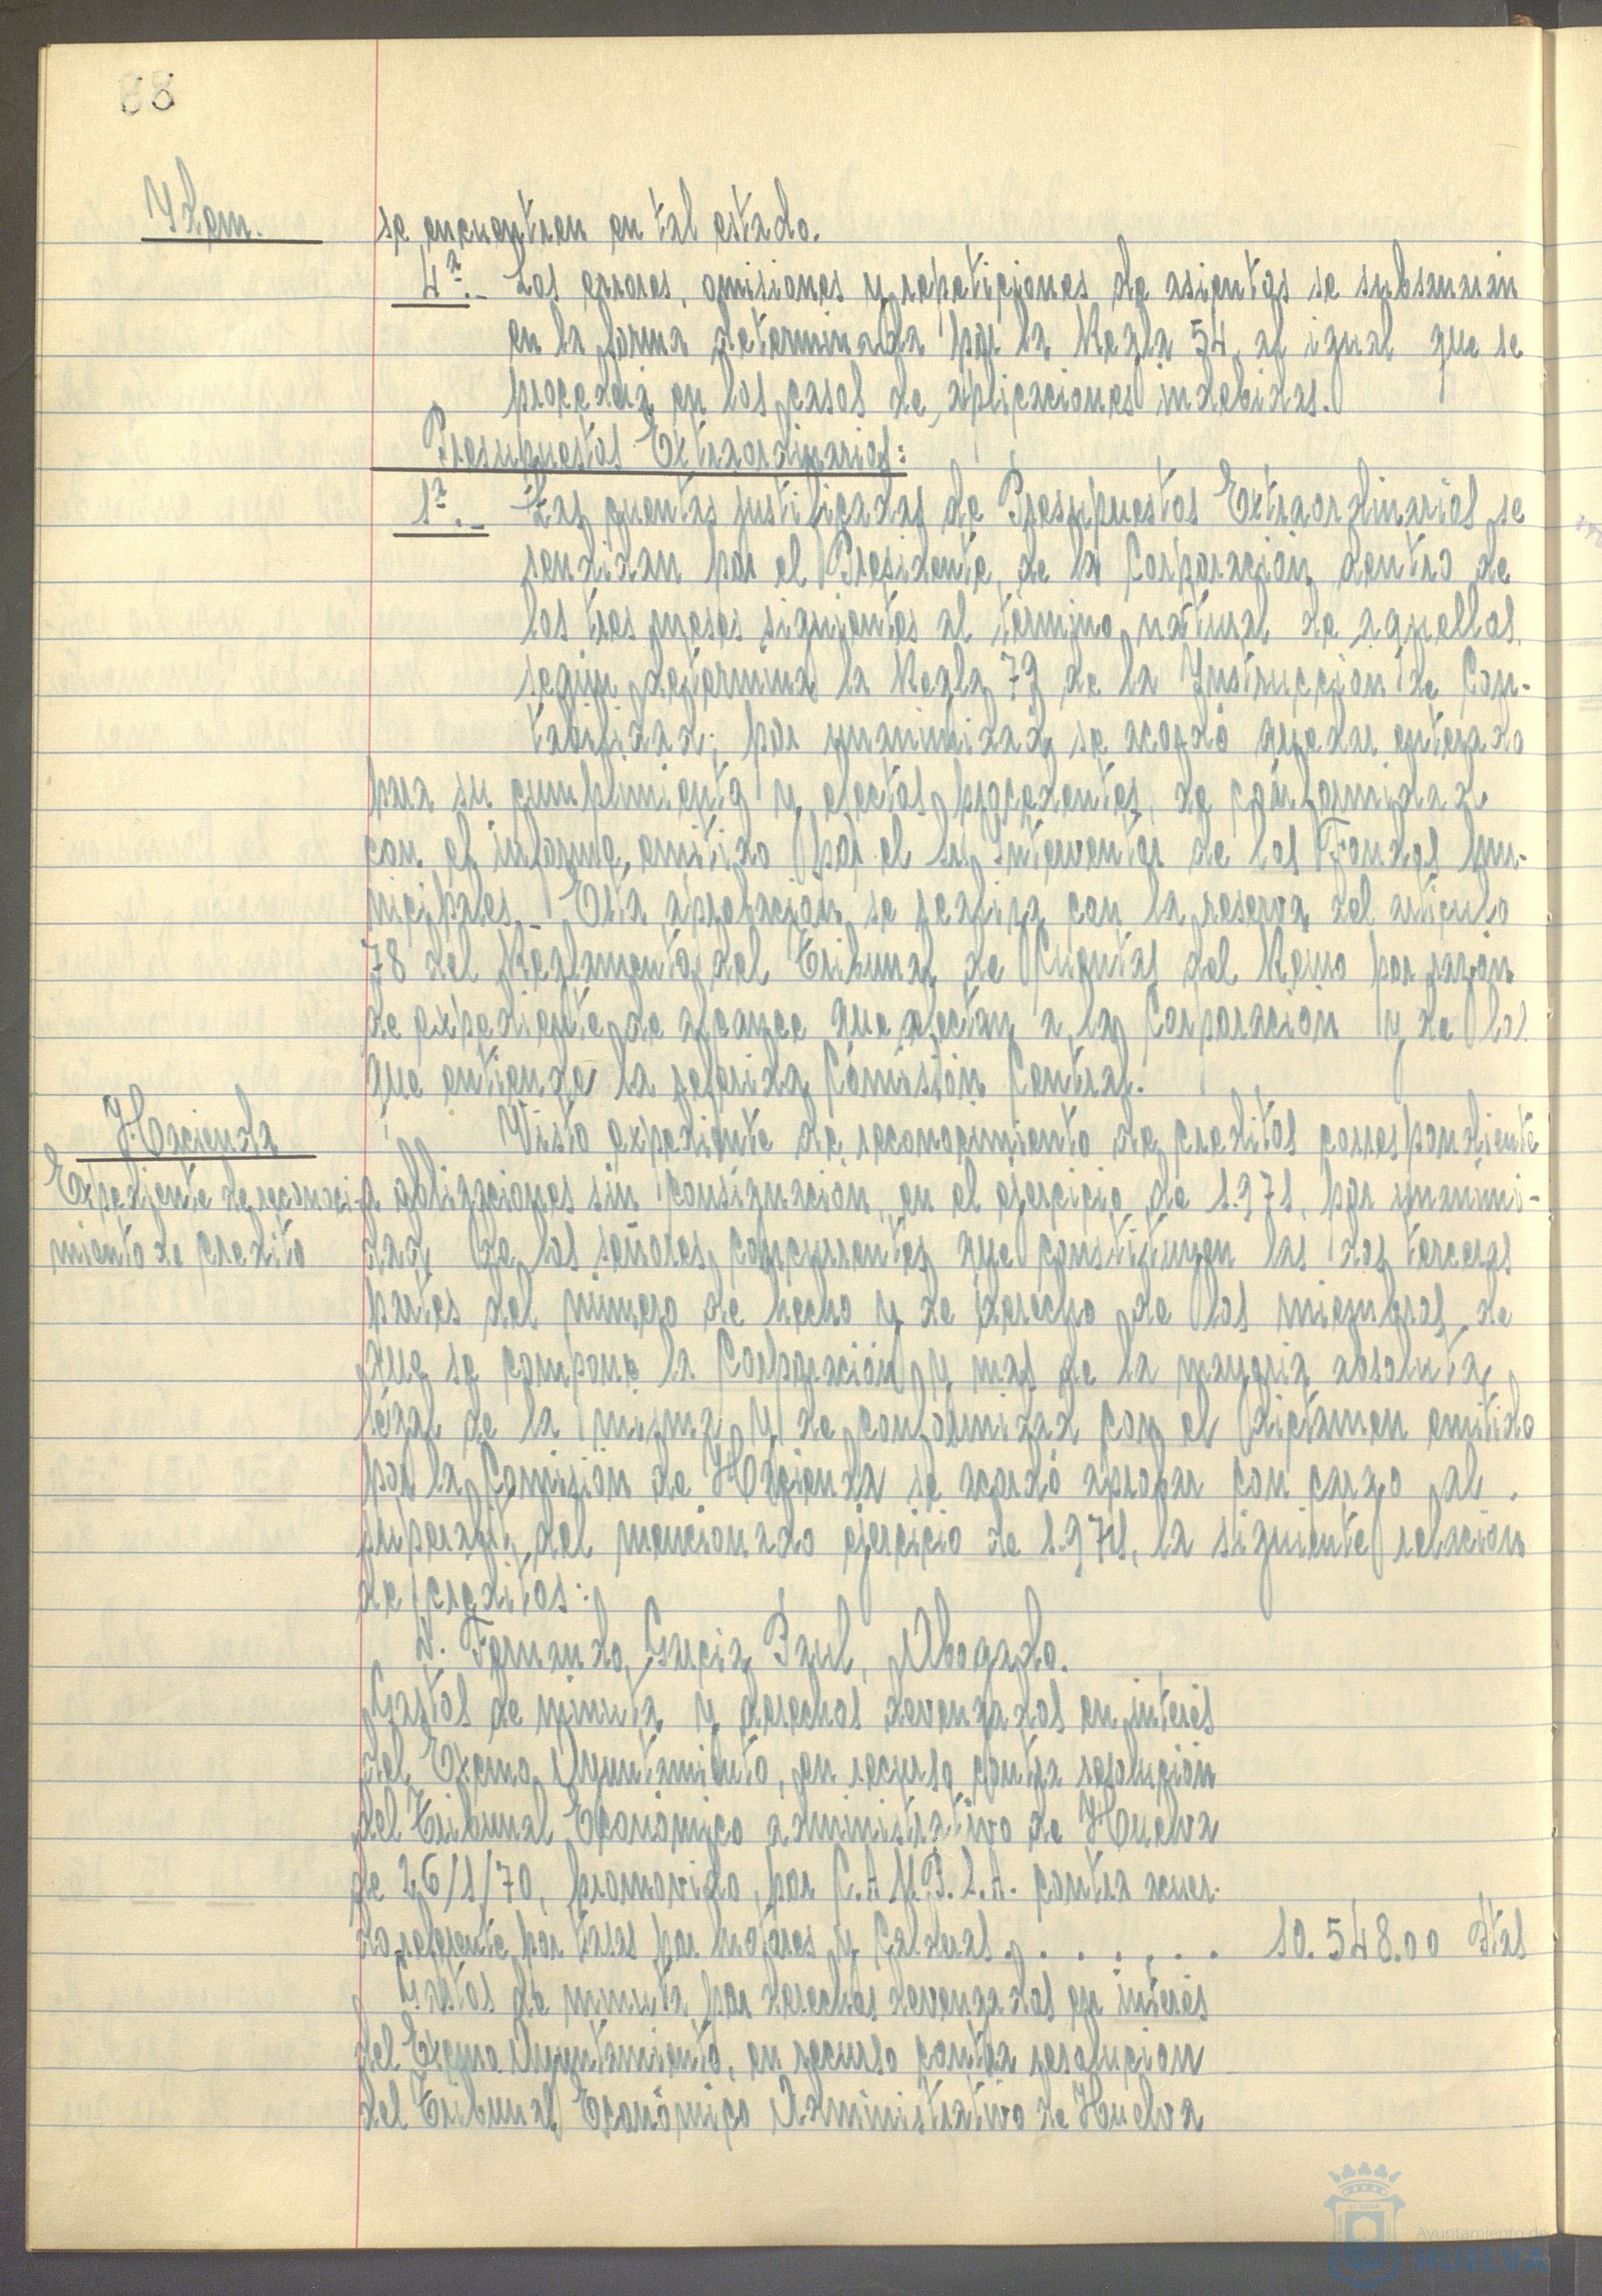 88
Ydem.
se encuentren en tal estado.
4ª.- Los errores, omisiones y repeticiones de asientos se subsanarán
en la forma determinada por la Regla 54, al igual que se
procederá en los casos de aplicaciones indebidas.
Presupuestos Extraordinarios:
1ª.- Las cuentas justificadas de Presupuestos Extraordinarios se
rendirán por el Presidente de la Corporación dentro de
los tres meses siguientes al termino natural de aquellos,
según determina la Regla 79 de la Instrucción de Con-
tabilidad; por unanimidad se acordó quedar enterado
para su cumplimiento y efectos procedentes, de conformidad
con el informe emitido por el Sr Interventor de los Fondos Mu-
nicipales.- Esta aprobación se realiza con la reserva del articulo
78 del Reglamento del Tribunal de Cuentas del Reino por razón
de expediente de alcance que afectan a la Corporación y de los
que entiende la referida Comisión Central.
Hacienda
Expediente de reconoci-
miento de credito
Visto expediente de reconocimiento de creditos correspondiente
a obligaciones sin consignación, en el ejercicio de 1.971, por unanimi-
dad de los señores concurrentes que constituyen las dos terceras
partes del número de hecho y de derecho de los miembros de
que se compone la Corporación y mas de la mayoria absoluta
legal de la misma y de conformidad con el dictamen emitido
por la Comisión de Hacienda se acordó aprobar con cargo al
superavit del mencionado ejercicio de 1.971, la siguiente relación
de creditos:
D. Fernando Garcia Paul, Abogado.
Gastos de minuta y derechos devengados en interés
del Excmo Ayuntamiento, en recurso contra resolución
del Tribunal Económico administrativo de Huelva
de 26/1/70, promovido por C.A.M.P.S.A. contra acuer-
do referente por tasas por motores y Calderas . . . . . . . 10.548.00 Ptas
Gastos de minuta por derechos devengados en interés
del Excmo Ayuntamiento, en recurso contra resolución
del Tribunal Económico Administrativo de Huelva
Ayuntamiento de
HUELVA